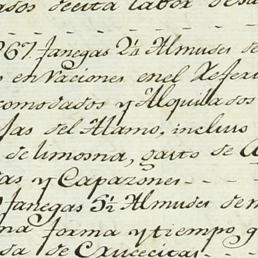 ados decita labor desd
967 fanegas 2½ Almudes de
s en Raciones enel Referi
comodados y Alquilados
fas del Alamo, incluso
de limosna, gasto de
as y Capazones
fanegas 5½ Almudes de m
na forma y tiempo q
da de Crucecitas